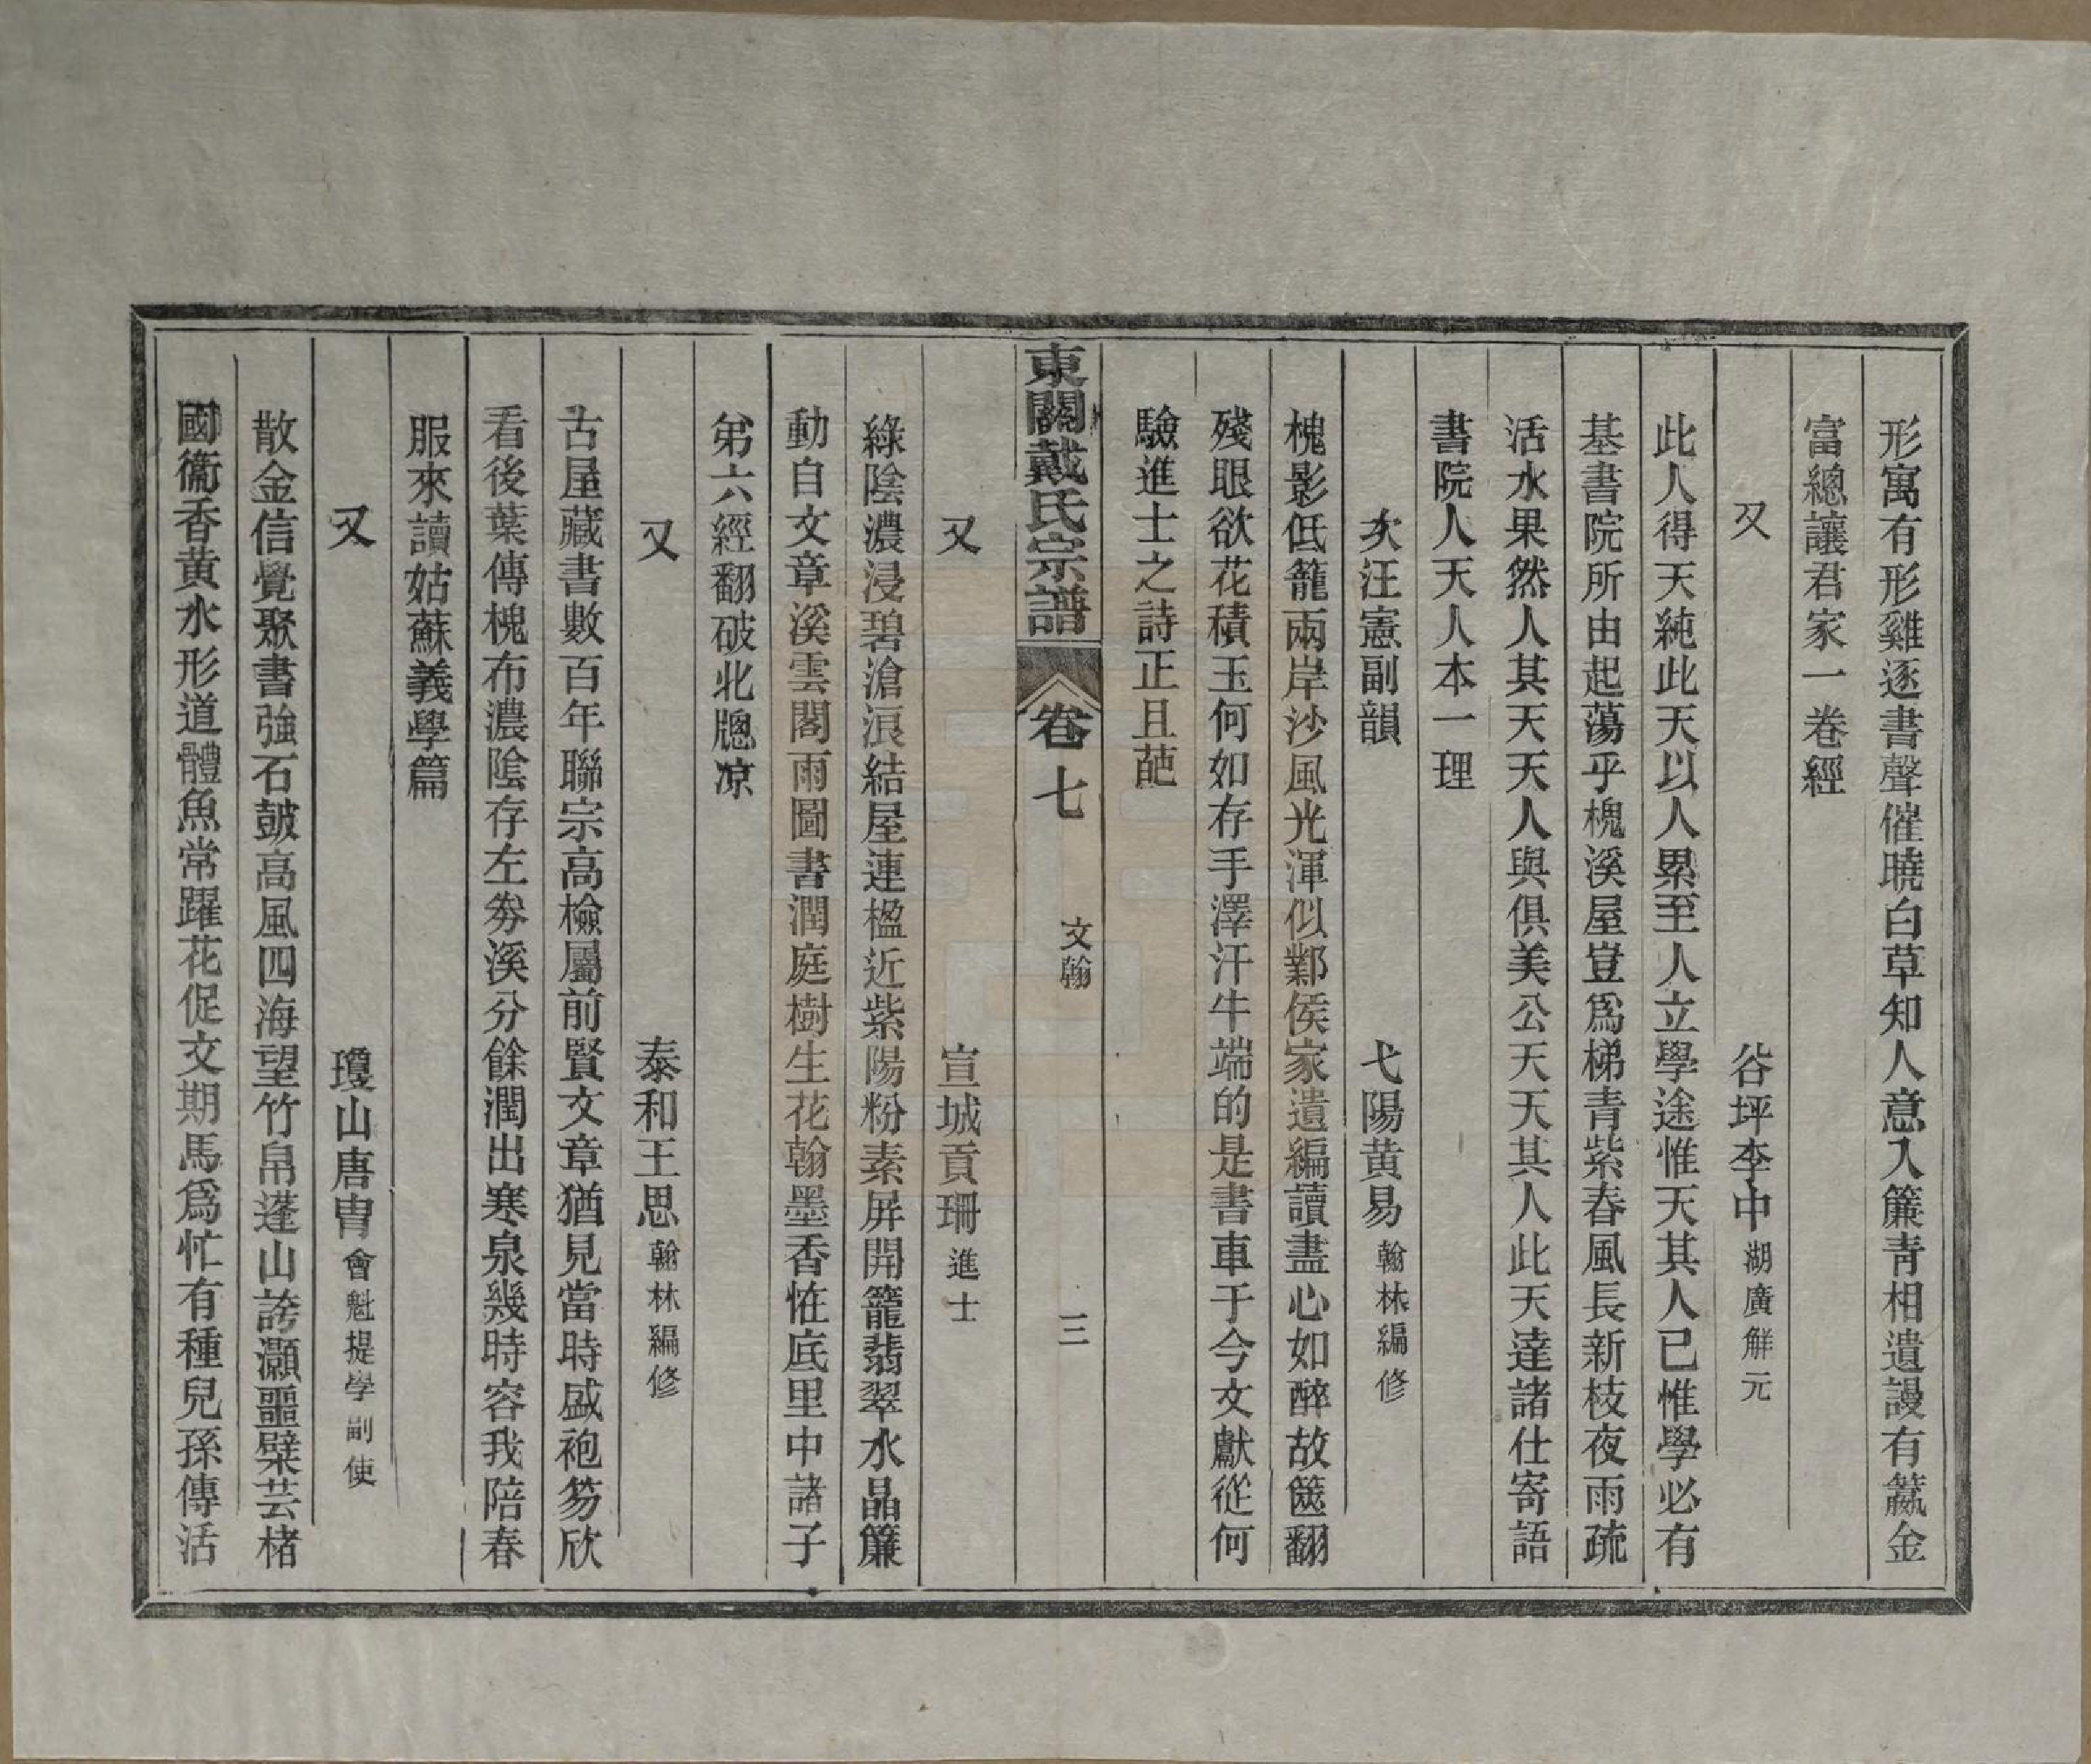 形寓有形雞逐書聲催曉白草知人意入簾靑相遺謾有籯金
富總讓君家一卷經
又　谷坪李中湖廣解元
此人得天純此天以人累至人立學途惟天其人已惟學必有
基書院所由起蕩乎槐溪屋豈爲梯青紫春風長新枝夜雨疏
活水果然人其天天人與俱美公天天其人此天達諸仕寄語
書院人天人本一理
次汪憲副韻　弋陽黄易翰林編修
槐影低籠兩岸沙風光渾似鄴侯家遺編讀盡心如醉故篋翻
殘眼欲花積玉何如存手澤汗牛端的是書車于今文獻從何
驗進士之詩正且葩
東關戴氏宗譜　卷七　文翰　三
又　宣城貢珊進士
綠陰濃浸碧滄浪結屋連楹近紫陽粉素屏開籠翡翠水晶簾
動自文章溪雲閣雨圖書潤庭樹生花翰墨香恠底里中諸子
弟六經翻破北牕凉
又　泰和王思翰林編修
古屋藏書數百年聯宗高檢屬前賢文章猶見當時盛袍笏欣
看後葉傳槐布濃陰存左劵溪分餘潤出寒泉幾時容我陪春
服來讀姑蘇義學篇
又　瓊山唐胄會魁提學副使
散金信覺聚書強石皷高風四海望竹帛蓬山誇灝噩檗芸楮
國衞香黄水形道體魚常躍花促文期馬爲忙有種兒孫傳活